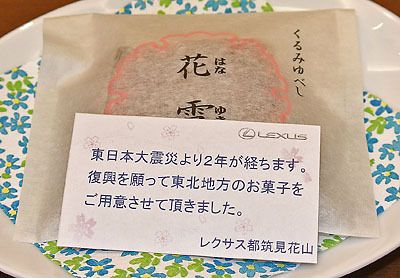 くるみゆべし
花
はな
雪
ゆき
LEXUS
東日本大震災より2年が経ちます。
復興を願って東北地方のお菓子を
ご用意させて頂きました。
レクサス都筑見花山